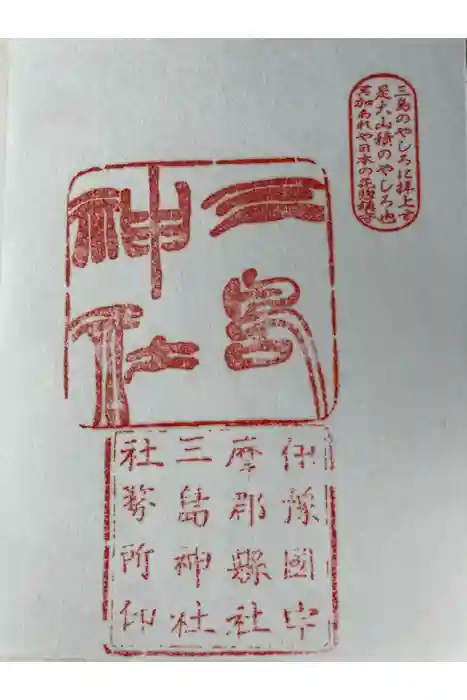 三島のやしろに拝上す
是大山積のやしろ也
冥加あれや日本の花
三島
神社
伊豫國宇
摩郡縣社
三島神社
社務所印